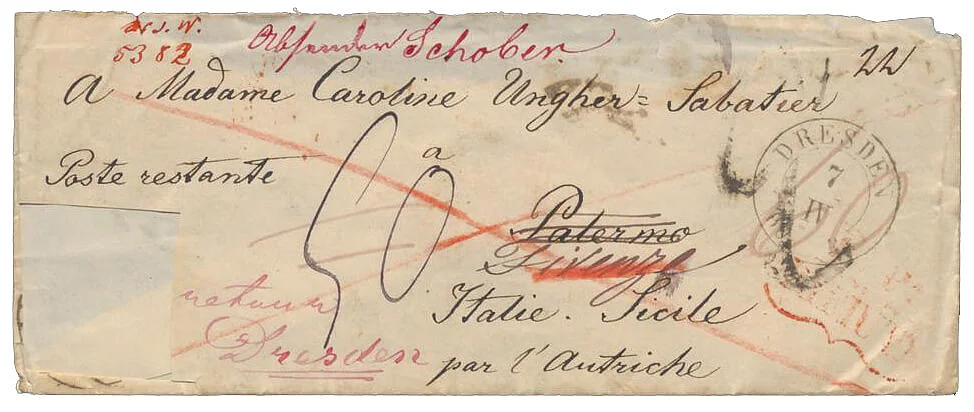 5382
Absender Schober.
22
A Madame Caroline Ungher=Sabatier
Poste restante
a
Palermo
Firenze
Italie. Sicile
par l'Autriche
retour
Dresden
DRESDEN
7
IV